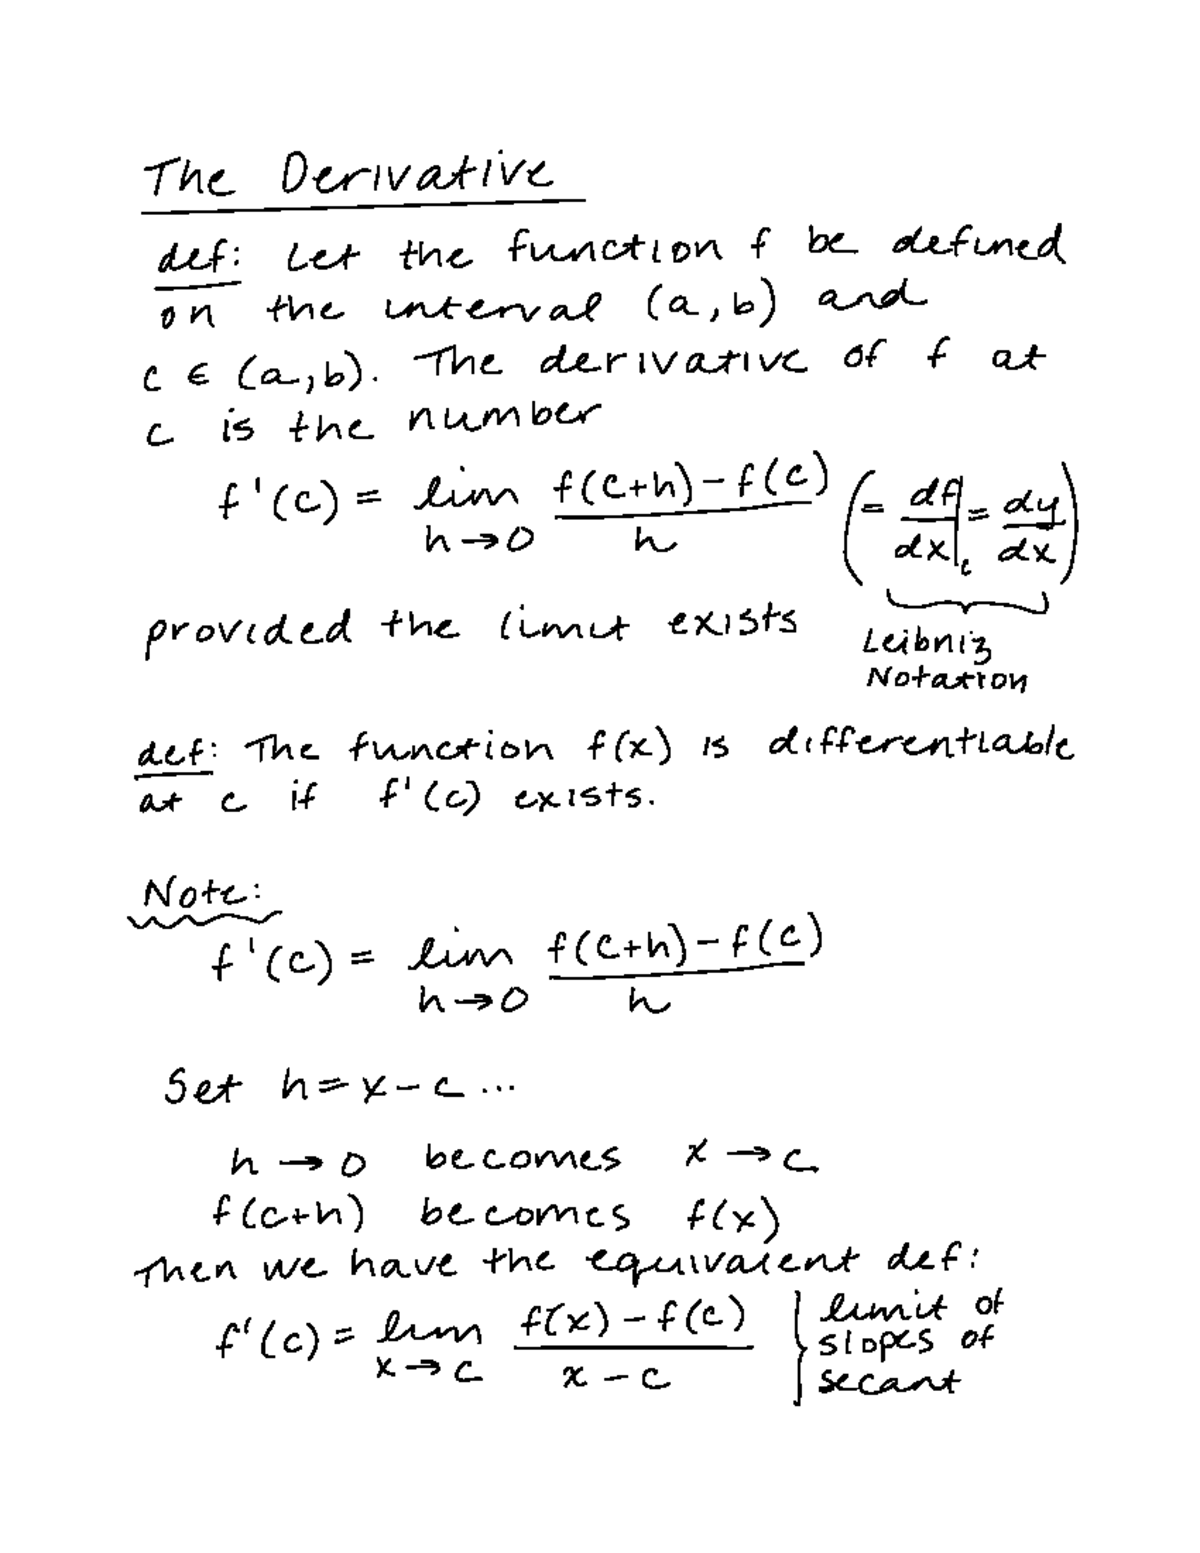 The Derivative
def: Let the function f be defined
on the interval (a,b) and
c ∈ (a,b). The derivative of f at
c is the number
f'(c) = lim h→0 f(c+h)-f(c) / h (= df/dx|c = dy/dx)
provided the limit exists
Leibniz
Notation
def: The function f(x) is differentiable
at c if f'(c) exists.
Note:
f'(c) = lim h→0 f(c+h)-f(c) / h
Set h=x-c...
h → 0 becomes x → c
f(c+h) becomes f(x)
Then we have the equivalent def:
f'(c) = lim x→c f(x)-f(c) / x-c
limit of
slopes of
secant